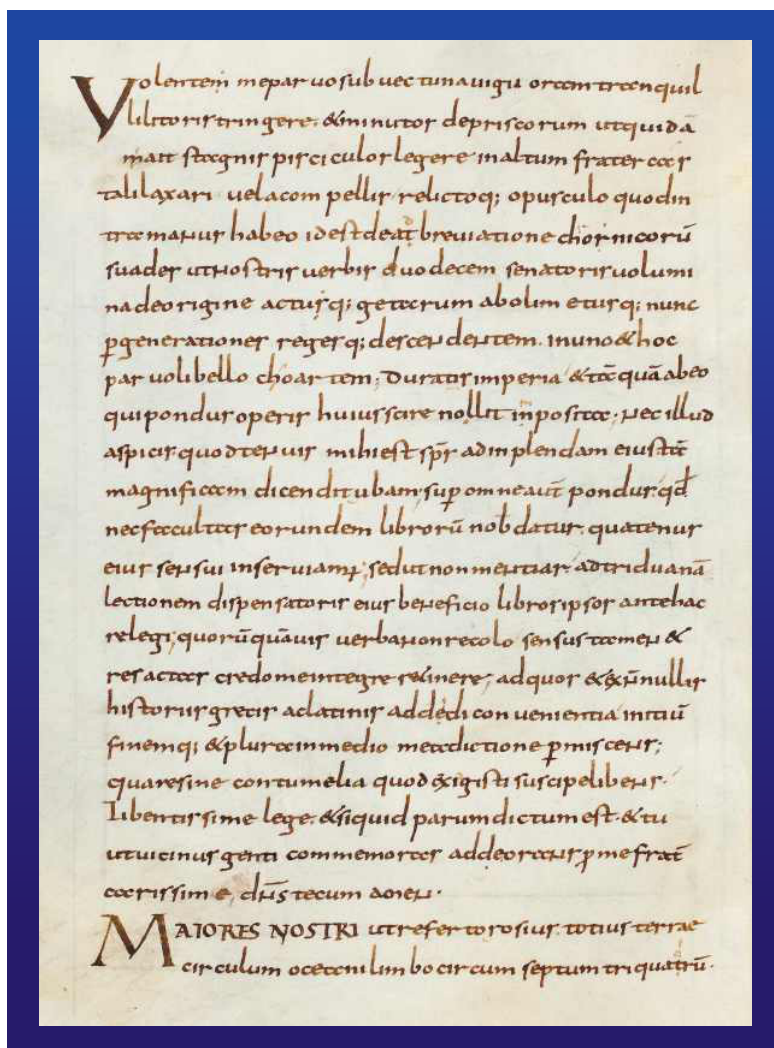 Volentem me paruo subuectum nauigio oram tranquil
li litoris stringere. & minutos de priscorum ut quidā
natt stagnis pisciculos legere in altum frater cas
tali laxari uelacom pellis relictoq; opusculo quod in
tra manus habeo id est de adbreuiatione chornicorū
suades ut nostris uerbis duodecem senatoris uolumi
na de origine actusq; getarum ab olim etusq; nunc
ꝑ generationes regesq; descendentem. in uno & hoc
paruo libello choartem; Duratis imperia & tā quā abeo
qui pondus operis huius scire nollit inposita; nec illud
aspicis quod tenuis mihi est spr̄ ad inplendam eius tā
magnificam dicendi tubam; suꝑ omne aut̄ pondus. qd̄
nec facultas eorundem librorū nob̄ datur. quatenus
eius sensui inseruiam; sed ut non mentiar. ad triduanā
lectionem dispensatoris eius beneficio libros ipsos antehac
relegi; quorū quāuis uerba non recolo sensus tamen &
res actas credo me integre r&inere; ad quos & ex nn̄ullis
historiis grecis ac latinis addedi conuenientia initiū
finemq; & plura in medio mea dictione ꝑmiscens;
quare sine contumelia quod exigisti suscipe libens.
Libentissime lege. & siquid parum dictum est. & tu
ut uicinus genti commemoras adde orans ꝓ me frat̄
carissime, dn̄s tecum amen.
MAIORES NOSTRI ut refert orosius. totius terrae
circulum oceani limbo circum septum triquatrū.